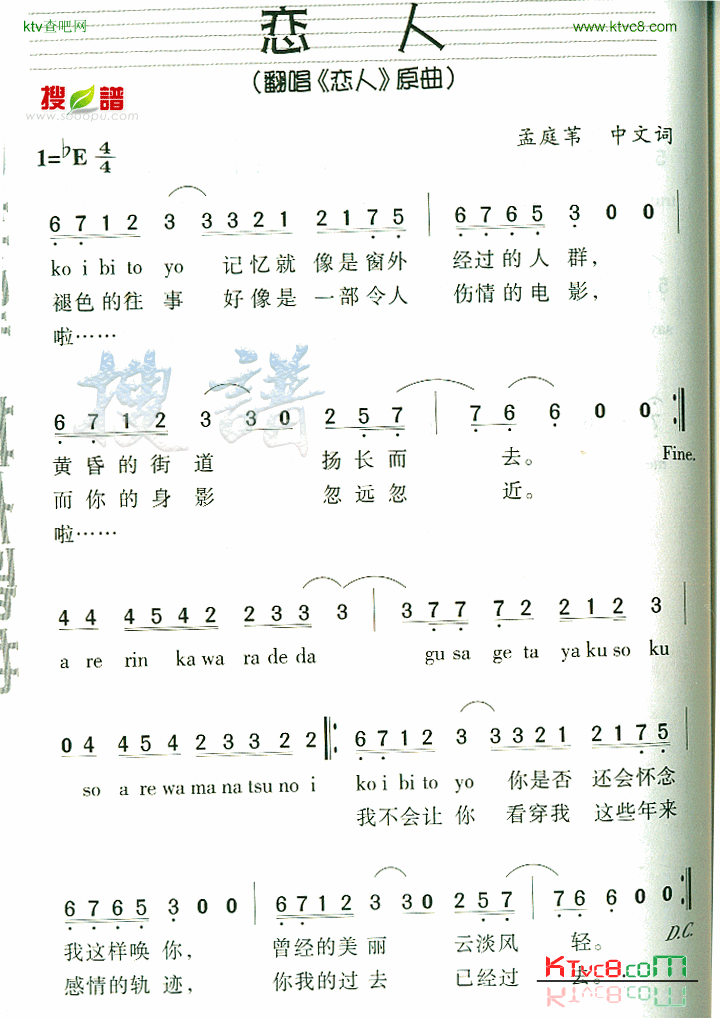 ktv查吧网
www.ktvc8.com
恋 人
(翻唱《恋人》原曲)
搜谱
www.sooopu.com
孟庭苇 中文词
1=♭E 4/4
6 7 1 2 3 3 3 2 1 2 1 7 5 | 6 7 6 5 3 0 0
ko i bi to yo 记忆就 像是窗外 经过的人 群,
褪色的往 事 好像是 一部令人 伤情的电 影,
啦……
搜谱
6 7 1 2 3 3 0 2 5 7 | 7 6 6 0 0 :‖
黄昏的街 道 扬长而 去。 Fine.
而你的身 影 忽远忽 近。
啦……
4 4 4 5 4 2 2 3 3 3 | 3 7 7 7 2 2 1 2 3
a re rin ka wa ra de da gu sa ge ta ya ku so ku
0 4 4 5 4 2 3 3 2 2 ‖: 6 7 1 2 3 3 3 2 1 2 1 7 5
so a re wa ma na tsu no i ko i bi to yo 你是否 还会怀念
我不会让 你 看穿我 这些年来
6 7 6 5 3 0 0 | 6 7 1 2 3 3 0 2 5 7 | 7 6 6 0 0 :‖
我这样唤 你, 曾经的美 丽 云淡风 轻。 D.C.
感情的轨 迹, 你我的过 去 已经过 去。
KTvc8.com